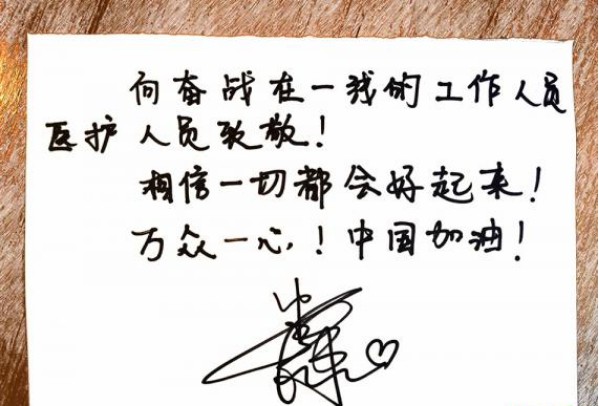 向奋战在一线的工作人员
医护人员致敬!
相信一切都会好起来!
万众一心!中国加油!